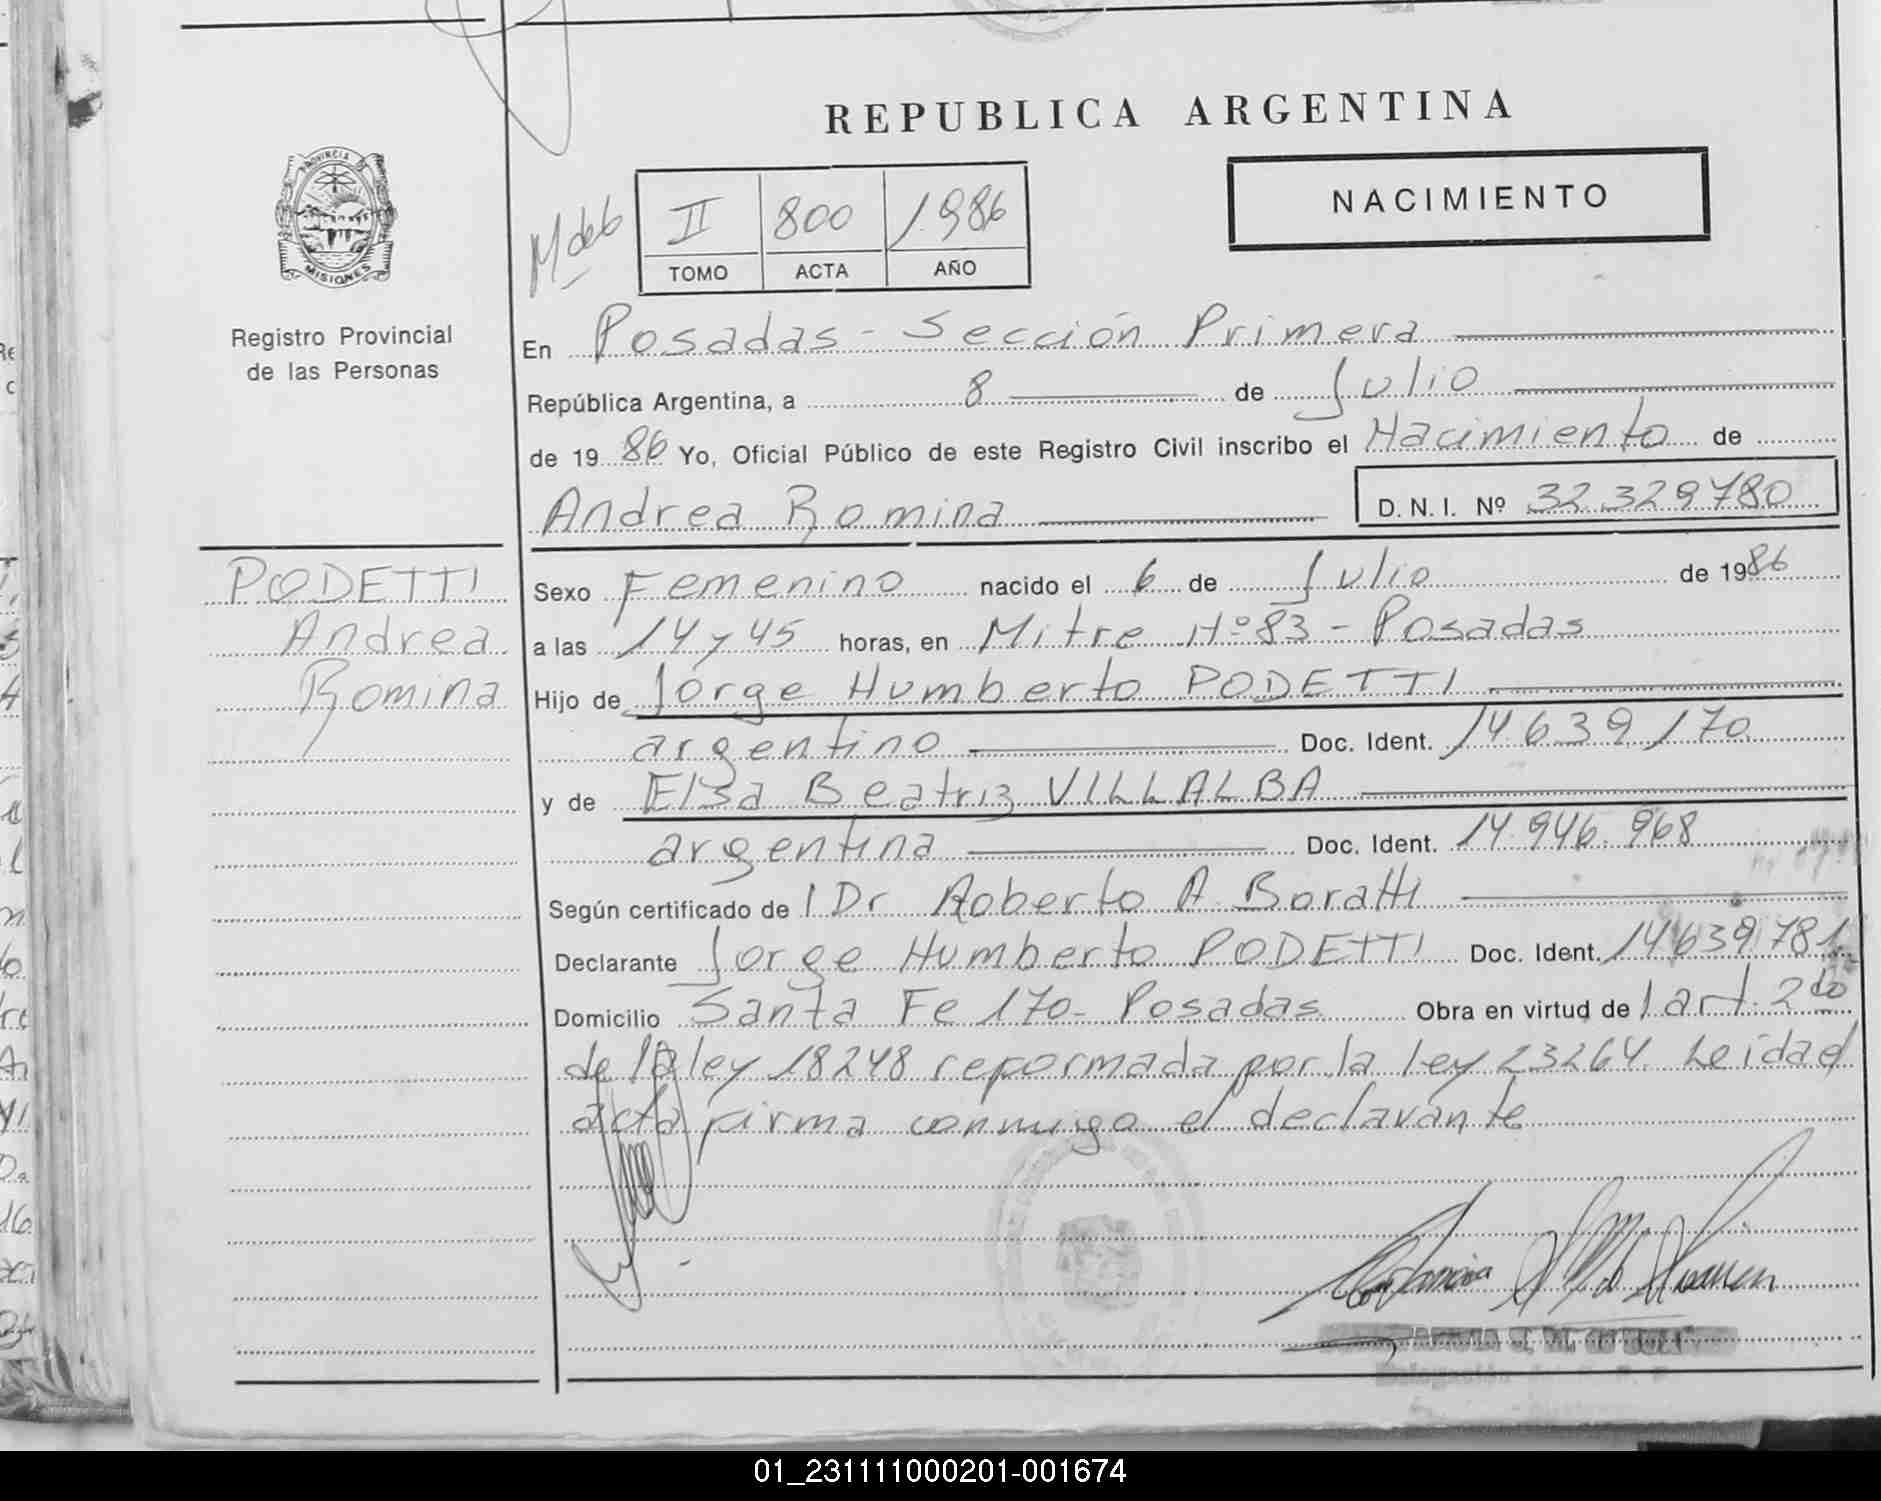 REPUBLICA ARGENTINA
NACIMIENTO
PROVINCIA DE
MISIONES
Registro Provincial
de las Personas
II 800 1986
TOMO ACTA AÑO
En Posadas - Sección Primera
República Argentina, a 8 de Julio
de 19 86 Yo, Oficial Público de este Registro Civil inscribo el Nacimiento de
Andrea Romina D.N.I. Nº 32.329780
PODETTI
Andrea
Romina
Sexo Femenino nacido el 6 de Julio de 1986
a las 14 y 45 horas, en Mitre Nº 83 - Posadas
Hijo de Jorge Humberto PODETTI
argentino Doc. Ident. 14 639 170
y de Elsa Beatriz VILLALBA
argentina Doc. Ident. 14.946.968
Según certificado de l Dr Roberto A. Boratti
Declarante Jorge Humberto PODETTI Doc. Ident. 14639781
Domicilio Santa Fe 170 - Posadas Obra en virtud de l art. 2do
de la ley 18248 reformada por la ley 23264. Leidad
acta firma conmigo el declarante
01_231111000201-001674